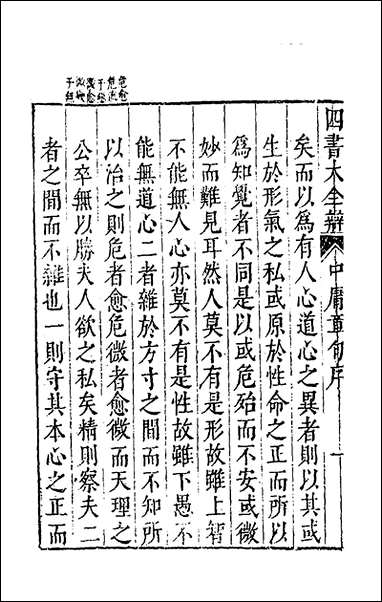 四書大全辯 中庸章句序 一
矣而以為有人心道心之異者則以其或
生於形氣之私或原於性命之正而所以
為知覺者不同是以或危殆而不安或微
妙而難見耳然人莫不有是形故雖上智
不能無人心亦莫不有是性故雖下愚不
能無道心二者雜於方寸之間而不知所
以治之則危者愈危微者愈微而天理之
公卒無以勝夫人欲之私矣精則察夫二
者之間而不雜也一則守其本心之正而